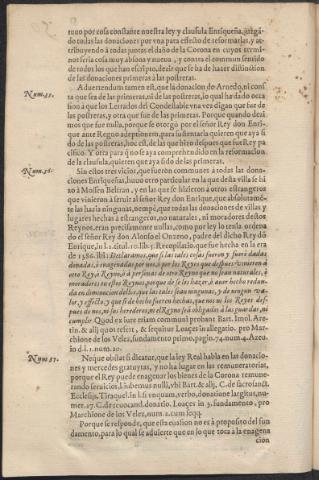 tuuo por cosa constante nuestra ley y clausula Enriqueña, juzgá-
do todas las donaciones por vna para effecto de reformarlas, y at-
tribuyendo à todas juntas el daño de la Corona en cuyos termi-
nos seria cosa muy absona y nueua, y contra el commun sentido
de todos los que han escripto, dezir que se ha de hazer distinction
de las donaciones primeras à las postreras.
Num. 35.
Aduertendum tamen est, que la donacion de Arnedo, ni con-
ta que sea de las primeras, ni de las postreras, lo qual ha dado oca
sion à que los Letrados del Condestable vna vez digan que fue de
las postreras, y otra que fue de las primeras. Porque quando dexi
mos que fue nulla, porque se otorgò por el señor Rey don Enri-
que ante Regni adeptionem, para sustentarla quieren que aya si
do de las postreras, hoc est, de las que hizo despues que fue Rey pa
cifico. Y otra para que no se aya comprehendido en la reformacion
de la clausula, quieren que aya sido de las primeras.
Num. 36.
Sin estos tres vicios, que fueron communes à todas las dona-
ciones Enriqueñas, huuo otro particular en la que desta villa se hi
zo à Mossen Beltran, y en las que se hizieron à otros estrangeros
que vinieron à seruir al señor Rey don Enrique, que absolutamé-
te las haria ningunas, nempè, que todas las donaciones de villas y
lugares hechas à estrangeros, no naturales, ni moradores destos
Reynos, eran precissamente nullas, como por ley lo tenia ordena
do el señor Rey don Alonso el Onzeno, padre del dicho Rey dó
Enrique, in l. 1. titul. 10. lib. 5. Recopilatio. que fue hecha en la era
de 1386. ibi: Declaramos, que si las tales cosas fueron y fueré dadas
donadas, ò enagenadas por nos, ò por los Reyes que despues vinieren à
otro Rey, à Reynos, ò à personas de otro Reyno que no sean naturales, ò
moradores en estos Reynos, porque de se las hazer, ò auer hecho redun-
da en diminucion dellos, que las tales sean ningunas, y de ningun va-
lor, y effecto, y que si de hecho fueren hechas, que nos ni los Reyes des-
pues de nos, ni sus herederos, ni el Reyno sea obligados à las guardar, ni
cumplir. Quod ex iure etiam communi probant Batt. Imol. Are-
tin. & alij quos refert, & sequitur Loaçes in allegatio. pro Mar-
chione de los Velez, fundamento primo, pagin. 74. num. 4. Azeo.
in d. l. 1. num. 20.
Num. 37.
Neque obstat si dicatur, que la ley Real habla en las donacio-
nes y mercedes gratuytas, y no ha lugar en las remuneratorias,
porque el Rey puede enagenar los bienes de la Corona remune-
rando seruicios, l. si bemus nulli, vbi Batt. & alij. C. de sacrosanct.
Ecclesijs, Tiraquel. in l. si vnquam, verbo, donatione largitus, nu-
mer. 17. C. de reuocand. donatio. Loaçes in 3. fundamento, pro
Marchione de los Velez, num. 2. cum seqq.
Porque se responde, que esta euasion no es à proposito del fun
damento, para lo qual se aduierte que en lo que toca à la enagena
cion